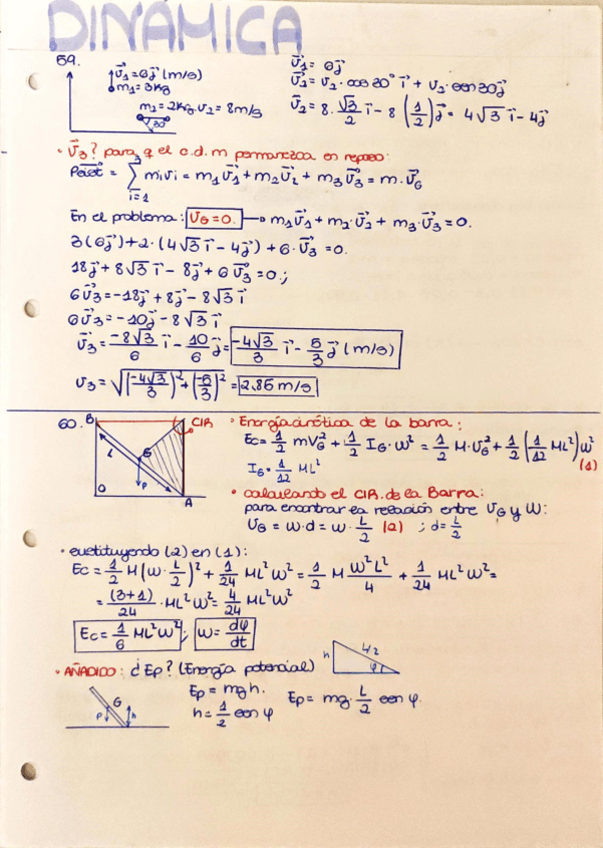 DINAMICA
59.
v⃗₁ = 6j⃗ (m/s)
m₁ = 3kg
m₂ = 2kg v₂ = 8m/s
30°
v⃗₁ = 6j⃗
v⃗₂ = v₂ · cos 30° i⃗ + v₂ · sen 30 j⃗
v⃗₂ = 8 · √3/2 i⃗ - 8 (1/2) j⃗ = 4√3 i⃗ - 4j⃗
· v⃗₃? para q el c.d.m permanezca en reposo:
= Σ mivi = m₁v⃗₁ + m₂v⃗₂ + m₃v⃗₃ = m · v⃗G
i=1
En el problema: VG = 0. → m₁v⃗₁ + m₂ · v⃗₂ + m₃ · v⃗₃ = 0.
3(6j⃗) + 2 · (4√3 i⃗ - 4j⃗) + 6 · v⃗₃ = 0.
18j⃗ + 8√3 i⃗ - 8j⃗ + 6v⃗₃ = 0;
6v⃗₃ = -18j⃗ + 8j⃗ - 8√3 i⃗
6v⃗₃ = -10j⃗ - 8√3 i⃗
v⃗₃ = -8√3/6 i⃗ - 10/6 j⃗ = -4√3/3 i⃗ - 5/3 j⃗ (m/s)
v₃ = √((-4√3/3)² + (-5/3)²) = 2.85 m/s
60.
B
CIR
L
G
P
O
A
· Energía cinética de la barra:
Ec = 1/2 mVG² + 1/2 IG · ω² = 1/2 M · VG² + 1/2 (1/12 ML²) ω²
(1)
IG = 1/12 ML²
· calculando el CIR. de la Barra:
para encontrar la relación entre VG y ω:
VG = ω · d = ω · L/2 (2) ; d = L/2
· sustituyendo (2) en (1):
Ec = 1/2 M (ω · L/2)² + 1/24 ML²ω² = 1/2 M ω²L²/4 + 1/24 ML²ω² =
= (3+1)/24 · ML²ω² = 4/24 ML²ω²
Ec = 1/6 ML²ω² ; ω = dφ/dt
· AÑADIDO: ¿Ep? (Energía potencial)
h
L/2
φ
G
P
h
Ep = mgh.
h = 1/2 sen φ
Ep = mg · L/2 sen φ.